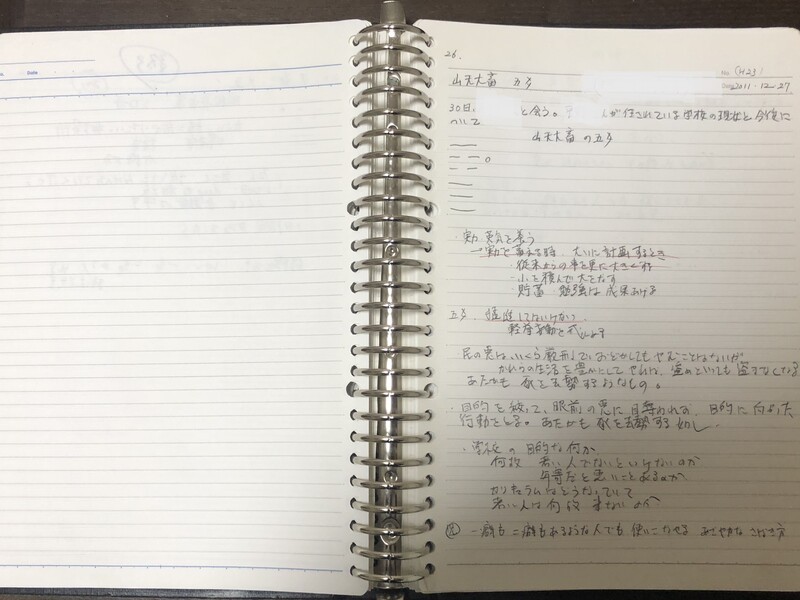 Date
26.
No.
山天大畜 五爻
Date 2011・12・27
30日、 と会う。 が任されている学校の現在と今後に
ついて
山天大畜 の五爻
英気を養う
大いに計画するとき
従来よりの事を更に大きくす
小を積んで大をなす
貯蓄 勉強は成果あげる
五爻
軽挙妄動を
民の悪は、いくら厳刑でおどかしてもやむことはないが
かれらの生活を豊かにしてやれば、盗めといっても盗まなくなる
あたかも 豕を去勢するようなもの。
・目的を絞って、眼前の悪に目奪われず、目的に向かった
行動をとる。あたかも 豕を去勢する如し
・学校の目的な何か
何故 若い人でないといけないのか
年寄だと悪いことあるのか
カリキュラムはどうなっていて
若い人は何故 来ないのか
一癖も二癖もあるような人でも 使いこなせる あざやかな さばき方